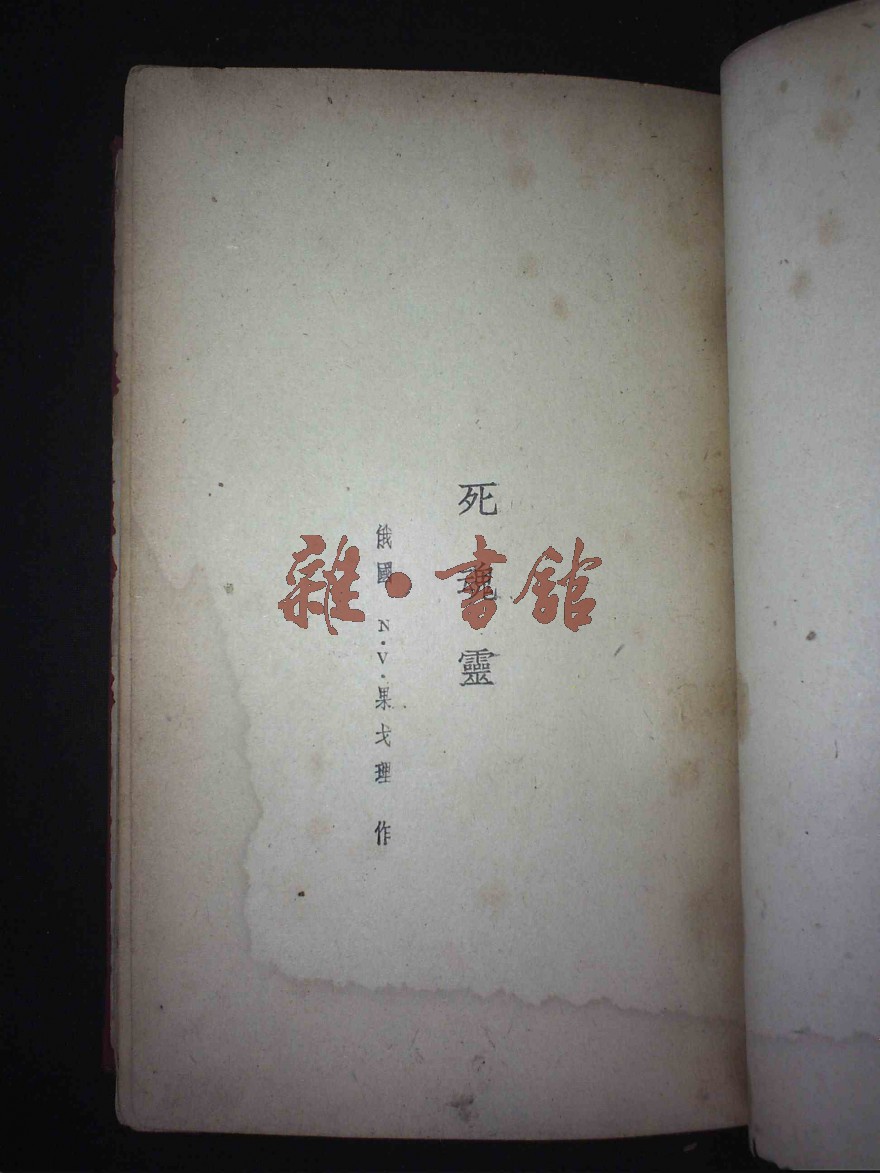 死魂靈
俄國 N·V·果戈理 作
雜·書館